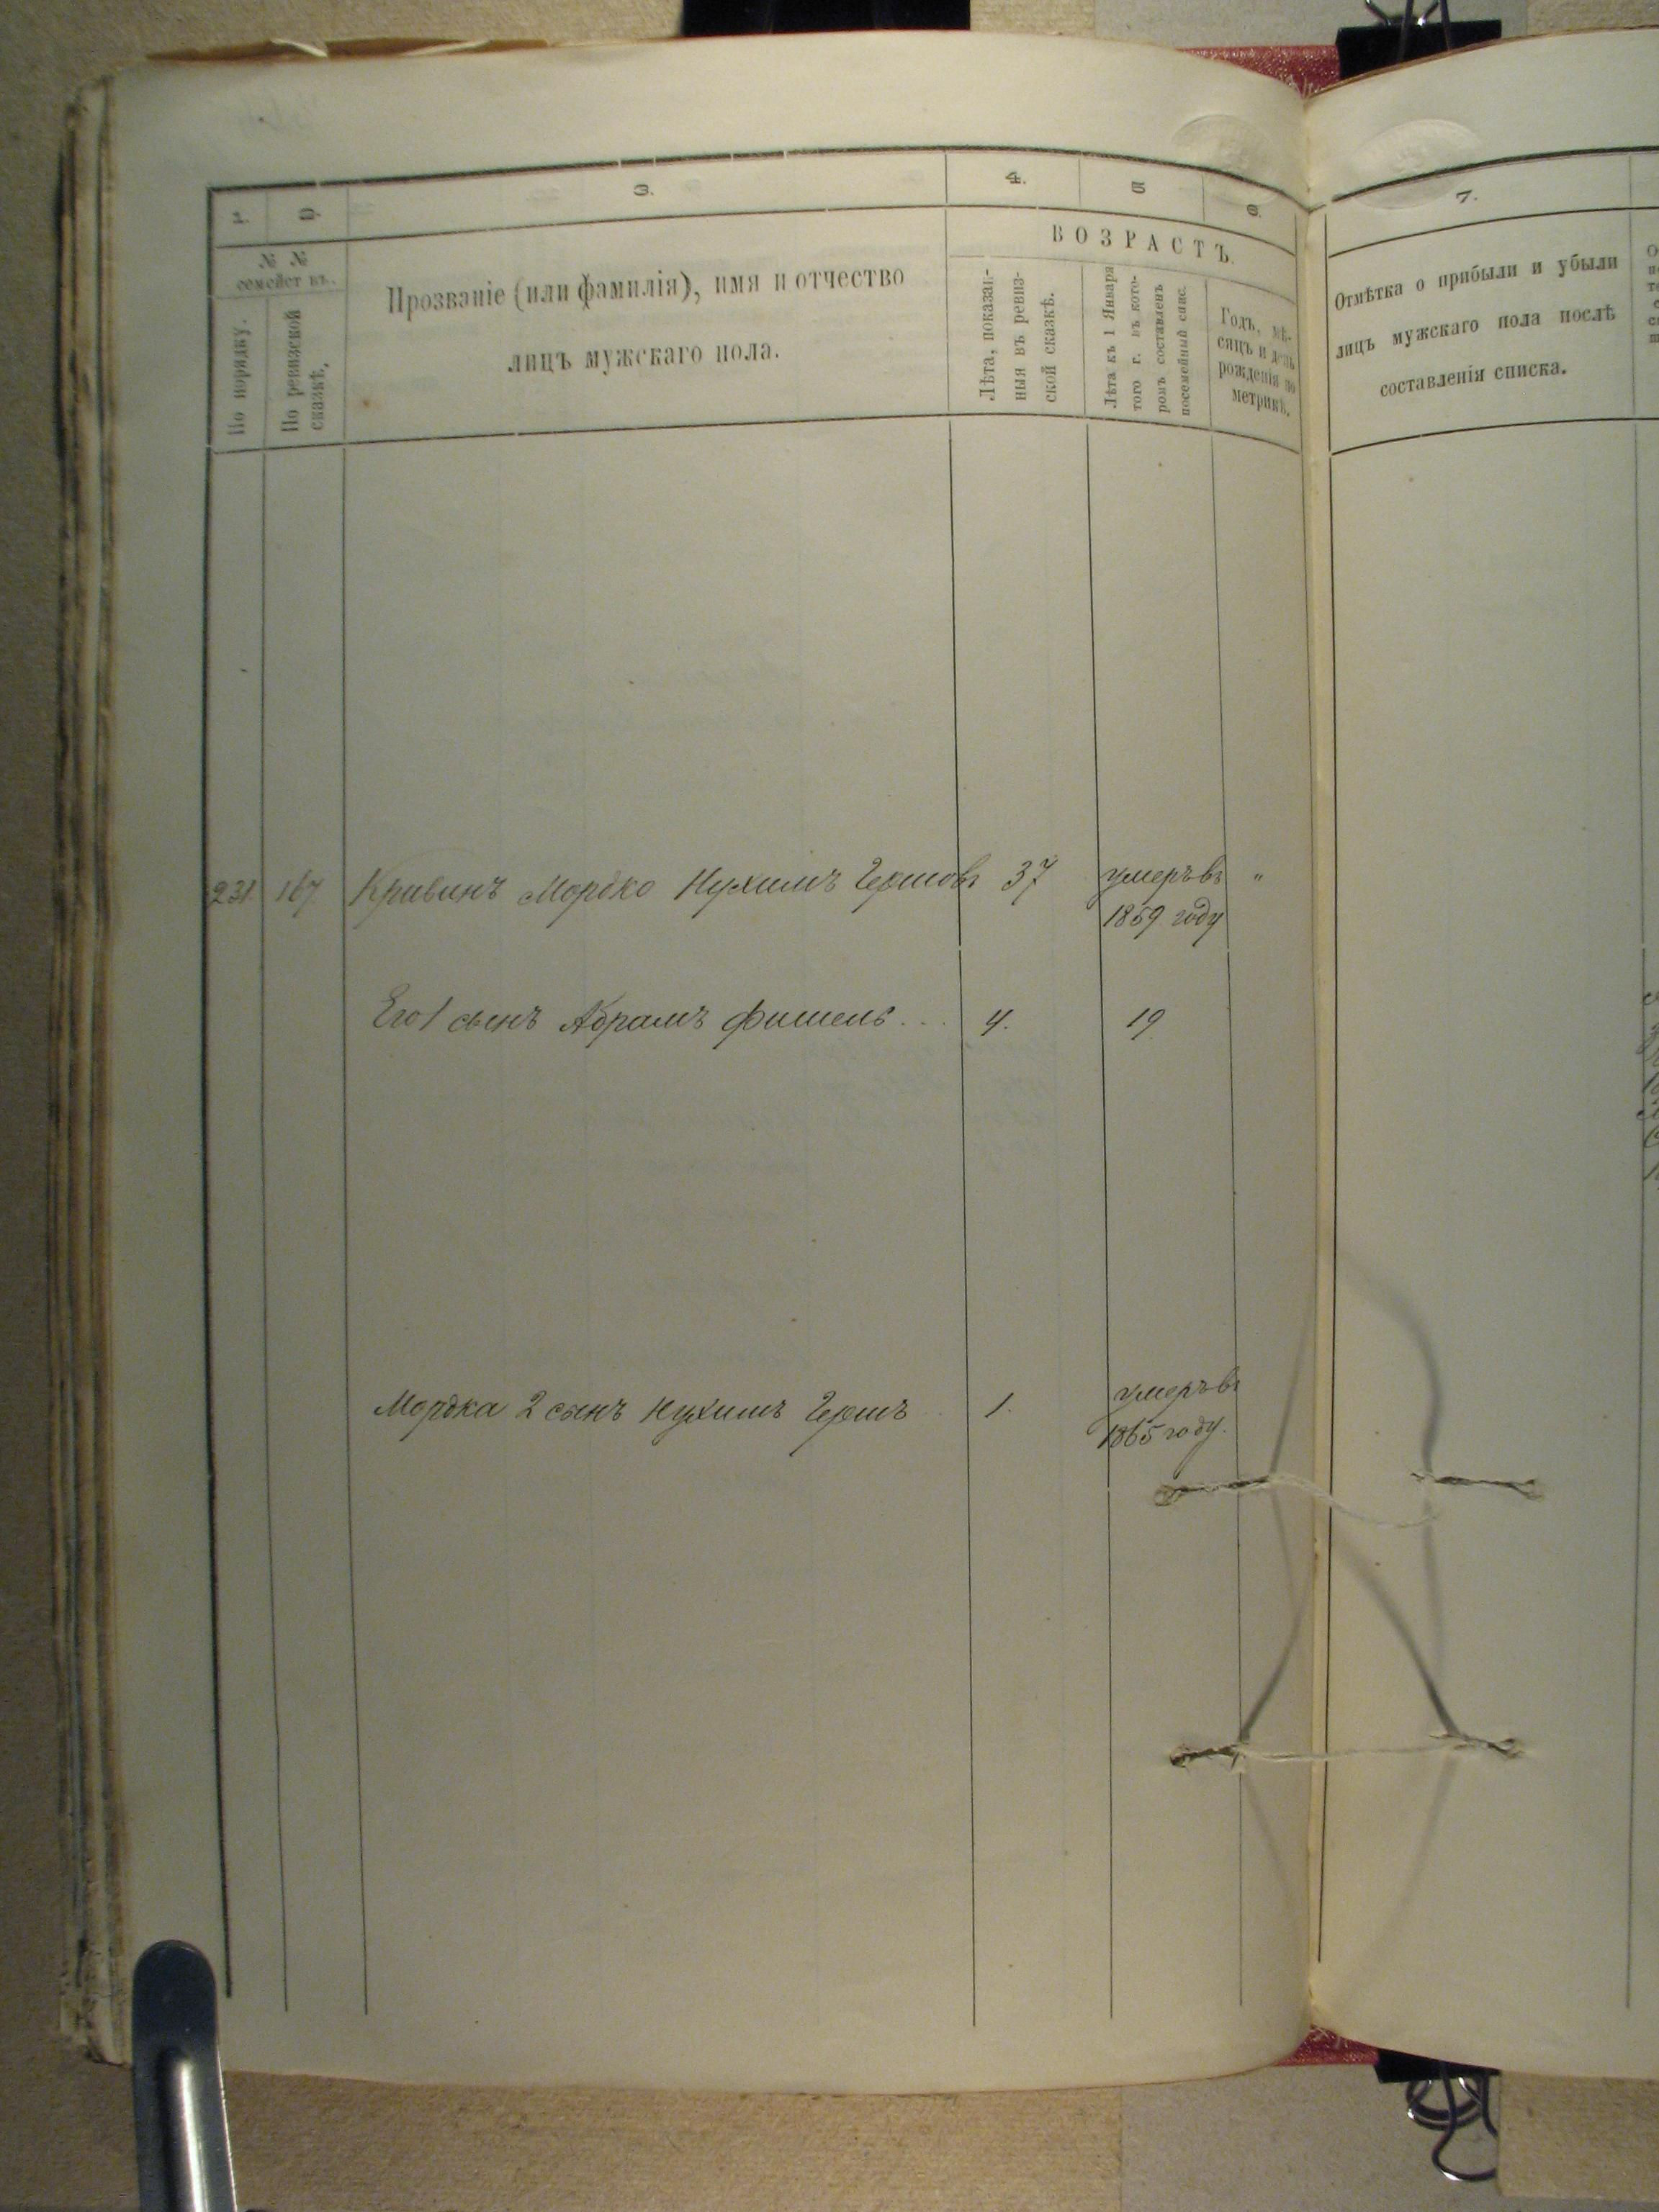 1. 2. 3. 4. 5 6. 7.
№ №
семействъ.
По порядку.
По ревизской
сказкѣ.
Прозваніе (или фамилія), имя и отчество
лицъ мужскаго пола.
ВОЗРАСТЪ.
Лѣта, показан-
ныя въ ревиз-
ской сказкѣ.
Лѣта къ 1 Января
того г. въ кото-
ромъ составленъ
посемейный спис.
Годъ, мѣ-
сяцъ и день
рожденія по
метрикѣ.
Отмѣтка о прибыли и убыли
лицъ мужскаго пола послѣ
составленія списка.
231 167 Кривинъ Мордко Нухимъ Гершовъ 37 умеръ въ "
1859 году
Его 1 сынъ Абрамъ Фишель... 4. 19
Мордка 2 сынъ Нухимъ Гершъ 1. умеръ въ
1865 году.